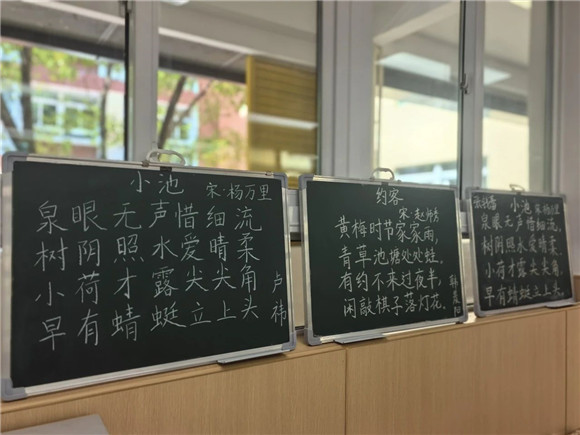 小池
宋·杨万里
泉眼无声惜细流
树阴照水爱晴柔
小荷才露尖尖角
早有蜻蜓立上头
卢祎
约客
宋·赵师秀
黄梅时节家家雨，
青草池塘处处蛙。
有约不来过夜半，
闲敲棋子落灯花。
小池
宋 杨万里
泉眼无声惜细流，
树阴照水爱晴柔。
小荷才露尖尖角，
早有蜻蜓立上头。